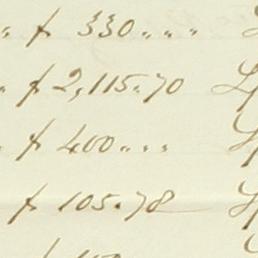 " $ 330 " " "
" $ 2,115.70
" $ 400 " " "
$ 105.78